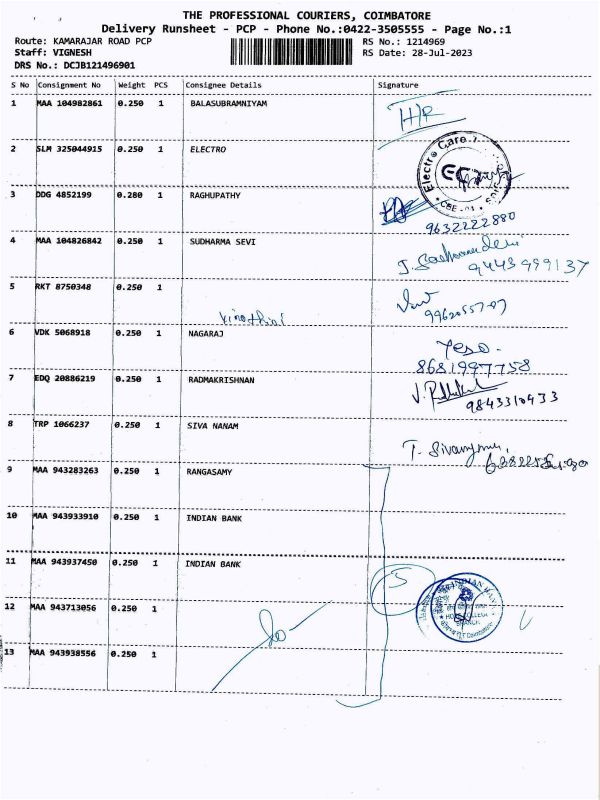 THE PROFESSIONAL COURIERS, COIMBATORE
Delivery Runsheet - PCP - Phone No.:0422-3505555 - Page No.:1
Route: KAMARAJAR ROAD PCP RS No.: 1214969
Staff: VIGNESH RS Date: 28-Jul-2023
DRS No.: DCJB121496901
S No Consignment No Weight PCS Consignee Details Signature
1 MAA 104982861 0.250 1 BALASUBRAMNIYAM
H/R
2 SLM 325044915 0.250 1 ELECTRO
Electro Care
CBE
3 DDG 4852199 0.280 1 RAGHUPATHY
9632222880
4 MAA 104826842 0.250 1 SUDHARMA SEVI
9443999137
5 RKT 8750348 0.250 1
Vinothini
6 VDK 5068918 0.250 1 NAGARAJ
8681997758
7 EDQ 20886219 0.250 1 RADMAKRISHNAN
9843310433
8 TRP 1066237 0.250 1 SIVA NANAM
9 MAA 943283263 0.250 1 RANGASAMY
10 MAA 943933910 0.250 1 INDIAN BANK
11 MAA 943937450 0.250 1 INDIAN BANK
5
INDIAN BANK
BRANCH
12 MAA 943713056 0.250 1
13 MAA 943938556 0.250 1